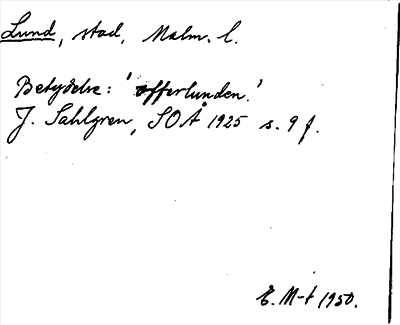 Lund, stad, Malm. l.
Betydelse: 'offerlunden.'
J. Sahlgren, SOÅ 1925 s. 9 f.
E. M-t 1950.